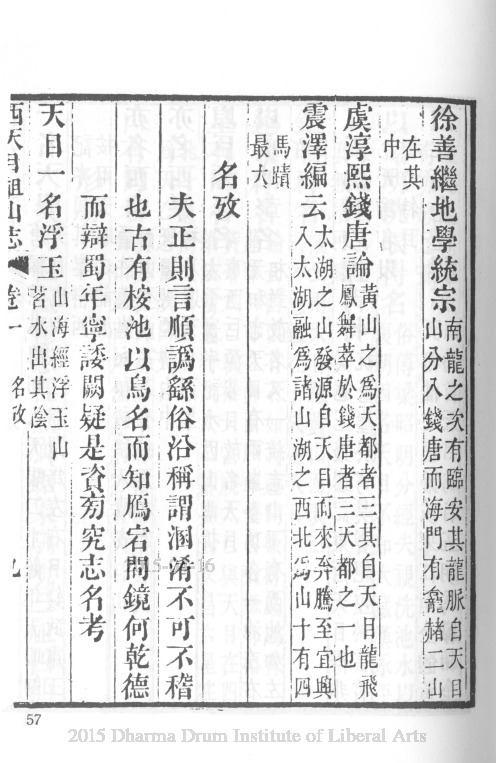 徐善繼地學統宗南龍之次有臨安其龍脈自天目
山分入錢唐而海門有龕赭二山
在其
中
虞淳熙錢唐論黃山之爲天都者三其自天目龍飛
鳳舞萃於錢唐者三天都之一也
震澤編云太湖之山發源自天目而來奔騰至宜興
入太湖融爲諸山湖之西北爲山十有四
馬蹟
最大
名攷
夫正則言順譌繇俗沿稱謂溷淆不可不稽
也古有桉池以烏名而知鴈宕問鏡何乾德
而辯蜀年寧諉闕疑是資旁究志名考
天目一名浮玉山海經浮玉山
苕水出其陰
西天目祖山志 卷一 名攷 九
57
2015 Dharma Drum Institute of Liberal Arts